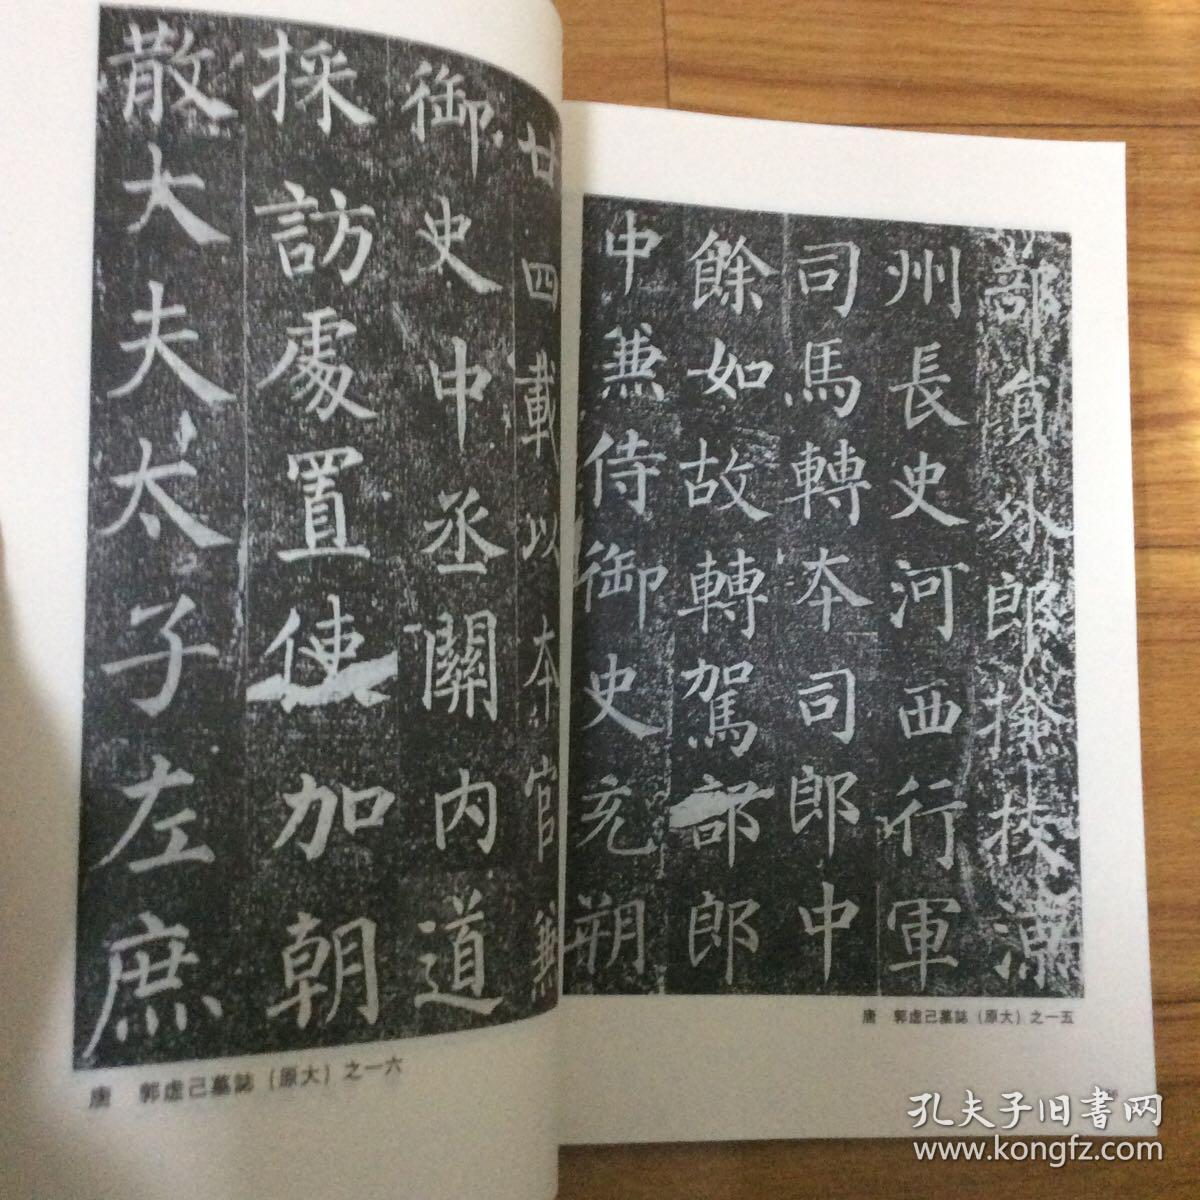 部貟外郎撿挍涼
州長史河西行軍
司馬轉本司郎中
餘如故轉駕部郎
中兼侍御史充朔
唐 郭虚己墓誌(原大)之一五
廿四載以本官兼
御史中丞關內道
採訪處置使加朝
散大夫太子左庶
唐 郭虚己墓誌(原大)之一六
孔夫子旧书网
www.kongfz.com